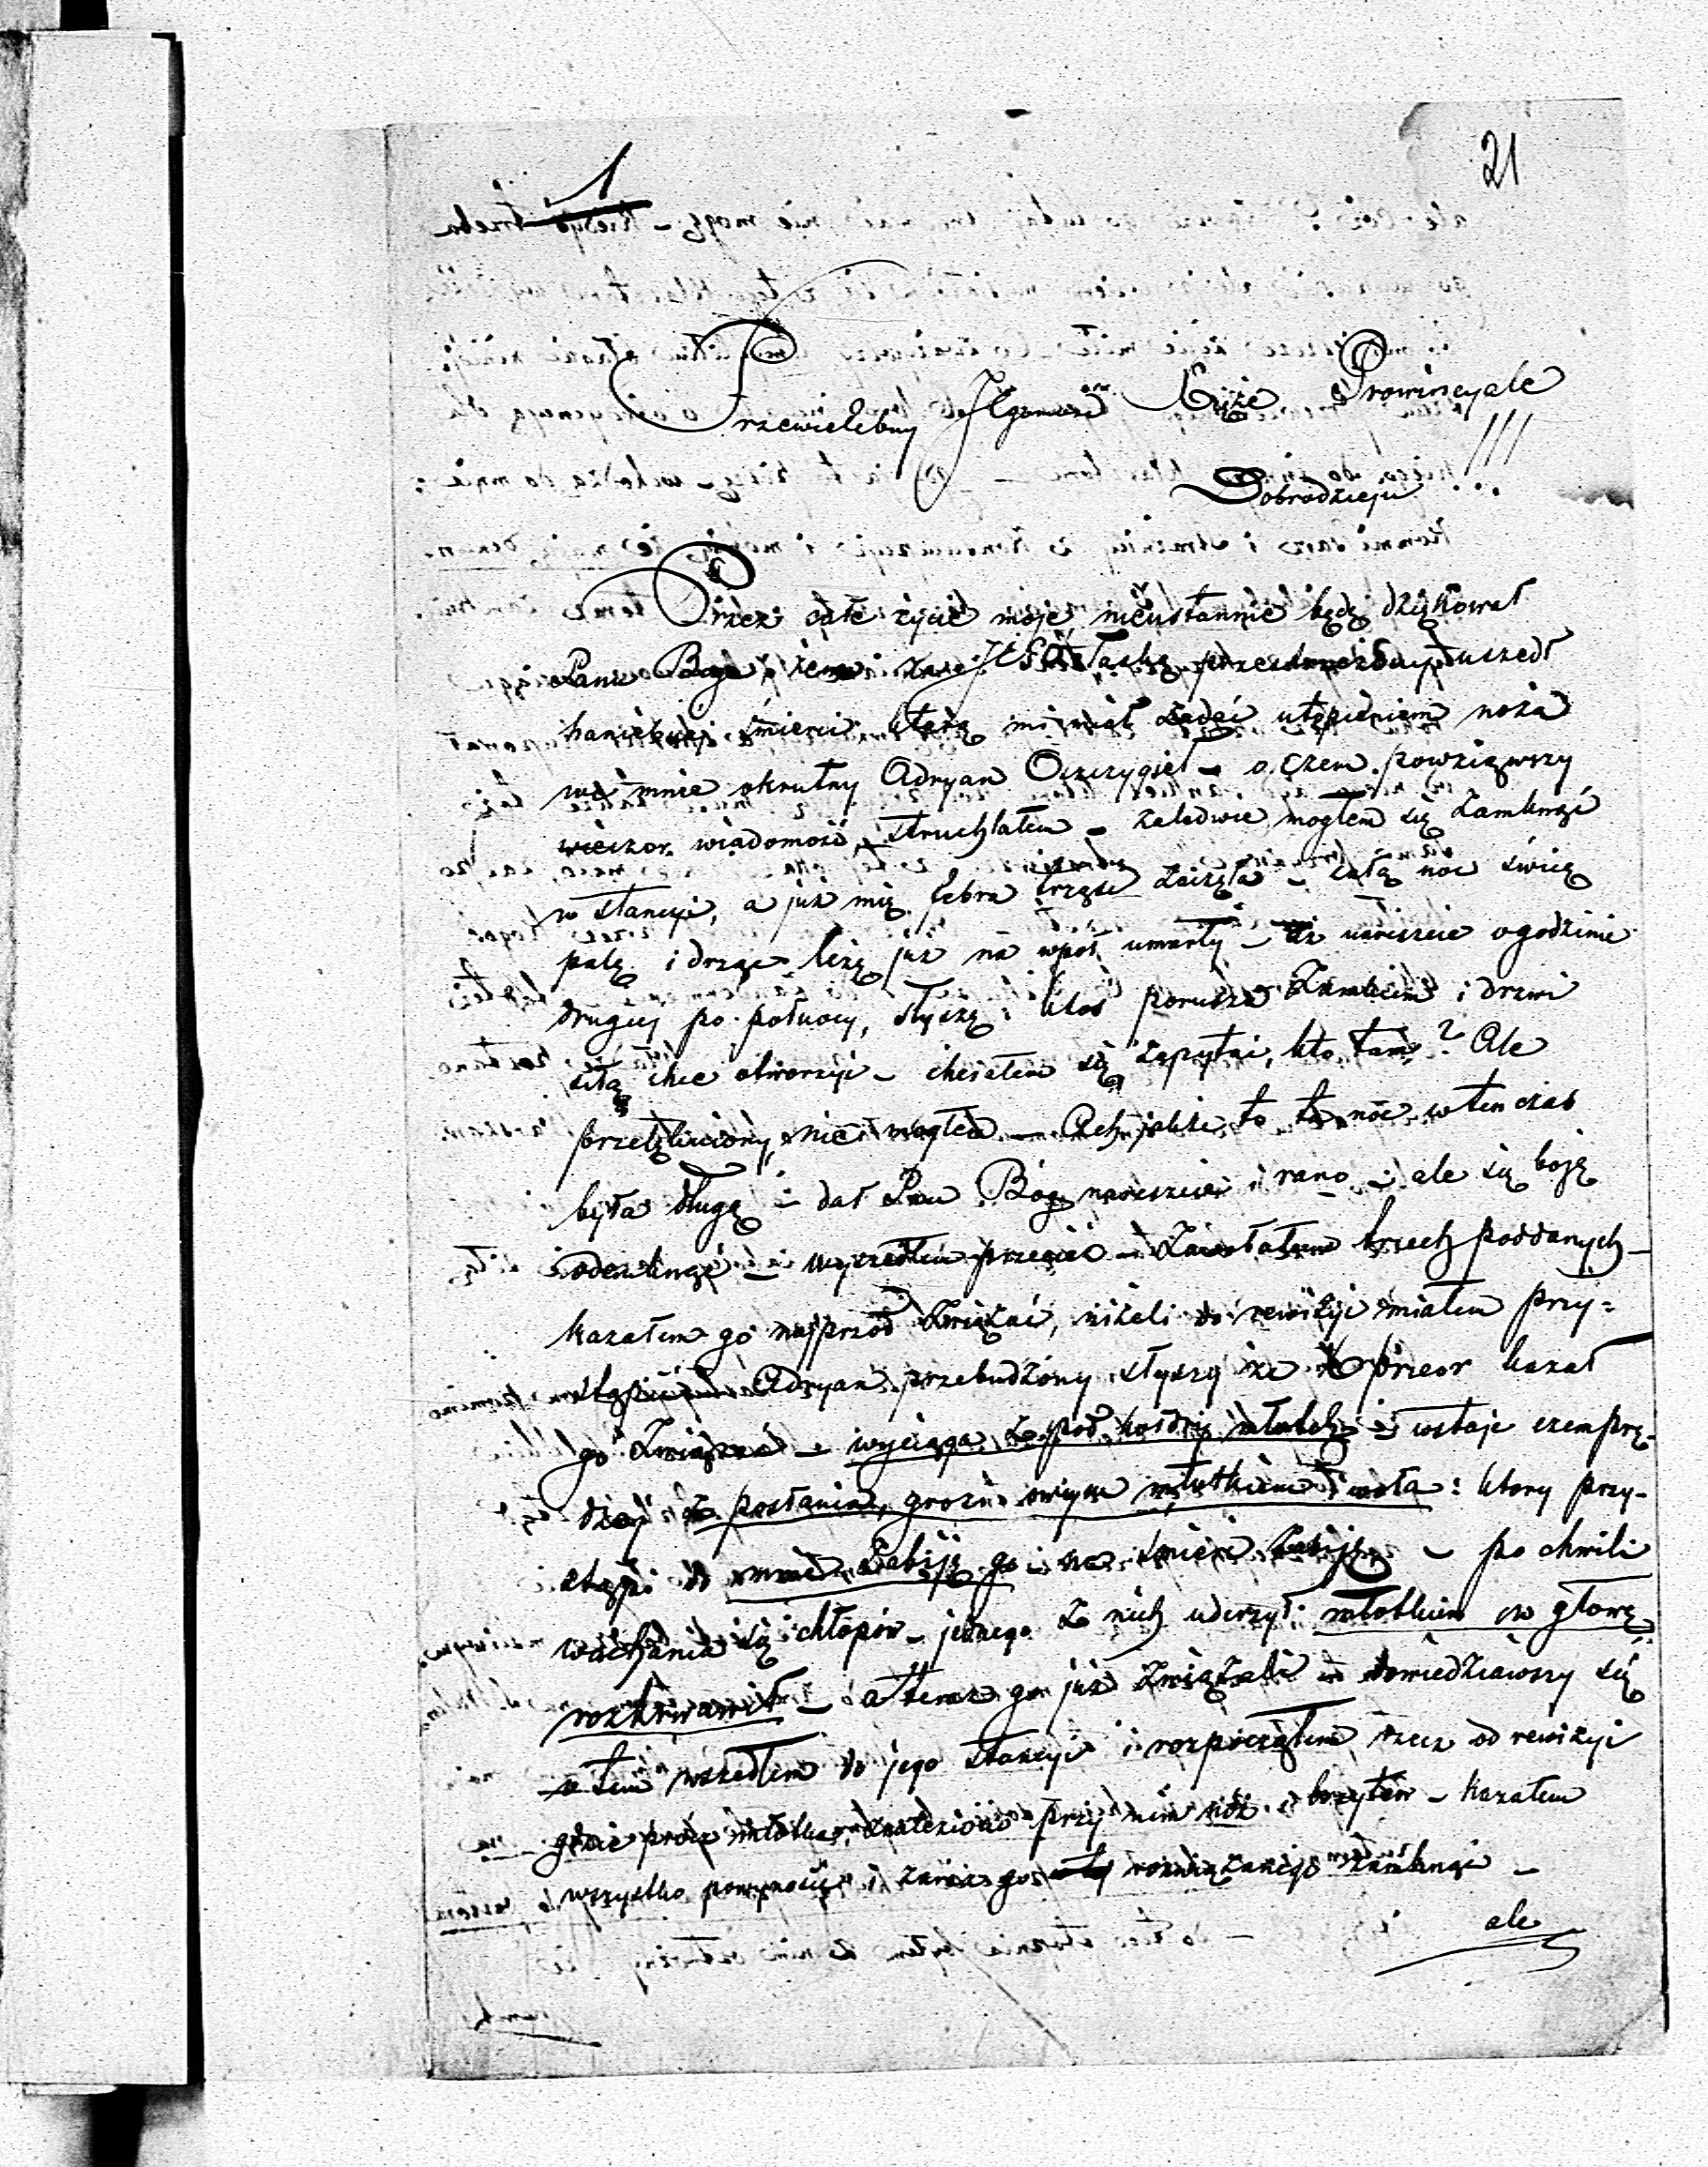 1
21
Przewielebny Jgomość Xięże Prowincyale
Dobrodzieju !!!
Przez całe życie moje nieustannie będę dziękował
Panu Bogu, żem łaskę uszedł
haniebnej śmierci którą mi miał zadać utopieniem noża
we mnie okrutny Adryan Oszczygieł – o czem powziąwszy
wieczor wiadomość, struchlałem – zaledwie mogłem się zamknąć
w stancyi, a już mię febra trząść zaczęła – całą noc świcę
palę i drżąc leżę już na wpoł umarły – aż nareszcie o godzinie
drugiej po połnocy, słyszę: ktoś porusza zamkiem i drzwi
siłą chce otworzyć – chciałem się zapytać, kto tam? Ale
przelękniony nie mogłem – Ach jakże to ta noc w ten czas
była długą – dał Pan Bóg nareszcie i rano – ale się boję
odemknąć – wyszedłem przecież – zawołałem trzech poddanych –
kazałem go najprzód związać, niżeli do rewizyi miałem przy-
stąpić – Adryan przebudzony słyszy że Xprzeor kazał
go związać – wyciąga z pod kołdry młotek i wstaje czemprę-
dzej z posłania, grozi swym młotkiem i woła: ktory przy-
stąpi do mnie zabiję go i na śmierć zabiję – po chwili
wachania się chłopów – jednego z nich uderzył młotkiem w głowę
rozkrwawił – a teraz go już związali – dowiedziawszy się
o tem wszedłem do jego stancyi i rozpocząłem rzecz od rewizyi
gdzie prócz młotka, znaleziono przy nim nóż i brzytew – kazałem
wszystko powynosić i zaraz go rozwiązanego zamknąć –
ale